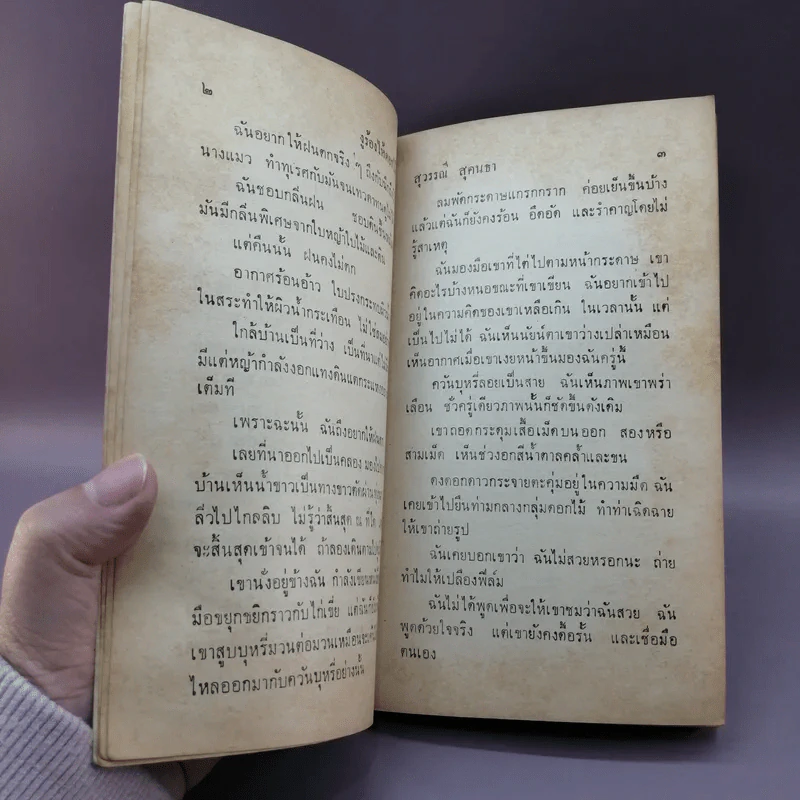 ๒
งูร้องไห้
ฉันอยากให้ฝนตกจริง ๆ ถึงกับ
นางแมว ทำทุเรศกับมันจนเทวดา
ฉันชอบกลิ่นฝน ชอบ
มันมีกลิ่นพิเศษจากใบหญ้าใบไม้และดิน
แต่คืนนั้น ฝนคงไม่ตก
อากาศร้อนอ้าว ใบปรงกระทบ
ในสระทำให้ผิวน้ำกระเทือน ไม่ใช่
ใกล้บ้านเป็นที่ว่าง เป็นที่นา
มีแต่หญ้ากำลังงอกแทงดินแตกระแหง
เต็มที
เพราะฉะนั้น ฉันถึงอยากให้ฝนตก
เลยที่นาออกไปเป็นคลอง มอง
บ้านเห็นน้ำขาวเป็นทางขาวตัดผ่าน
ลิ่วไปไกลลิบ ไม่รู้ว่าสิ้นสุด ณ ที่ใด
จะสิ้นสุดเข้าจนได้ ถ้าลองเดิน
เขานั่งอยู่ข้างฉัน กำลังเขียน
มือขยุกขยิกราวกับไก่เขี่ย แต่ฉันก็
เขาสูบบุหรี่มวนต่อมวนเหมือน
ไหลออกมากับควันบุหรี่อย่างนั้น
สุวรรณี สุคนธา
๓
ลมพัดกระดาษแกรกกราก ค่อยเย็นขึ้นบ้าง
แล้วแต่ฉันก็ยังคงร้อน อึดอัด และรำคาญโดยไม่
รู้สาเหตุ
ฉันมองมือเขาที่ไต่ไปตามหน้ากระดาษ เขา
คิดอะไรบ้างหนอขณะที่เขาเขียน ฉันอยากเข้าไป
อยู่ในความคิดของเขาเหลือเกิน ในเวลานั้น แต่
เป็นไปไม่ได้ ฉันเห็นนัยน์ตาเขาว่างเปล่าเหมือน
เห็นอากาศเมื่อเขาเงยหน้าขึ้นมองฉันครู่นี้
ควันบุหรี่ลอยเป็นสาย ฉันเห็นภาพเขาพร่า
เลือน ชั่วครู่เดียวภาพนั้นก็ชัดขึ้นดังเดิม
เขาถอดกระดุมเสื้อเม็ดบนออก สองหรือ
สามเม็ด เห็นช่วงอกสีน้ำตาลคล้ำและขน
ดงดอกดาวกระจายตะคุ่มอยู่ในความมืด ฉัน
เคยเข้าไปยืนท่ามกลางกลุ่มดอกไม้ ทำท่าเฉิดฉาย
ให้เขาถ่ายรูป
ฉันเคยบอกเขาว่า ฉันไม่สวยหรอกนะ ถ่าย
ทำไมให้เปลืองฟิล์ม
ฉันไม่ได้พูดเพื่อจะให้เขาชมว่าฉันสวย ฉัน
พูดด้วยใจจริง แต่เขายังคงดื้อรั้น และเชื่อมือ
ตนเอง